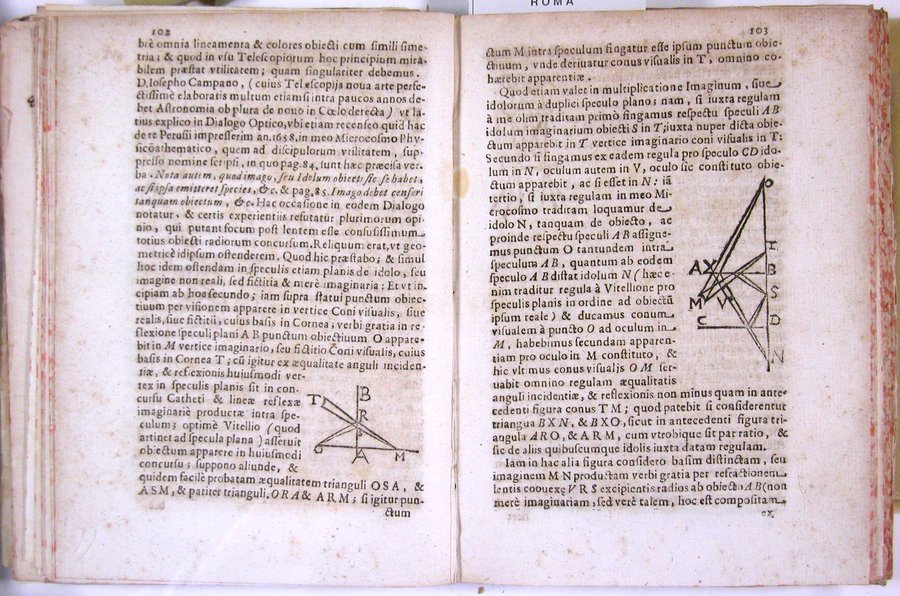 ROMA
102
brè omnia lineamenta & colores obiecti cum simili sime-
tria; & quod in vsu Telescopiorum hoc principium mira-
bilem præstat vtilitatem; quam singulariter debemus.
D. Iosepho Campano, (cuius Telescopijs noua arte perfe-
ctissimè elaboratis multum etiamsi intra paucos annos de-
bet Astronomia ob plura de nouo in Cœlo detecta) vt la-
tius explico in Dialogo Optico, vbi etiam recenseo quid hac
de re Perusii impresserim an. 1658. in meo Microcosmo Phy-
sicomathematico, quem ad discipulorum vtilitatem, sup-
presso nomine scripsi, in quo pag. 84, sunt hæc præcisa ver-
ba. Nota autem, quod imago, seu Idolum obiecti sic se habet,
ac si ipsa emitteret species, &c. & pag. 85. Imago debet censeri
tanquam obiectum, &c. Hac occasione in eodem Dialogo
notatur. & certis experientiis refutatur plurimorum opi-
nio, qui putant focum post lentem esse consusissimum
totius obiecti radiorum concursum. Reliquum erat, vt geo-
metricè idipsum ostenderem. Quod hic præstabo; & simul
hoc idem ostendam in speculis etiam planis de idolo, seu
imagine non reali, sed fictitia & merè imaginaria: Et vt in-
cipiam ab hoc secundo; iam supra statui punctum obiec-
tiuum per visionem apparere in vertice Coni visualis, siue
realis, siue fictitii, cuius basis in Cornea; verbi gratia in re-
flexione speculi plani A B punctum obiectiuum O appare-
bit in M vertice imaginario, seu fictitio Coni visualis, cuius
basis in Cornea T; cum igitur ex æqualitate anguli inciden-
tiæ, & reflexionis huiusmodi ver-
tex in speculis planis sit in con-
cursu Catheti & lineæ reflexæ
imaginariè productæ intra spe-
culum; optimè Vitellio (quod
artinet ad specula plana) asseruit
obiectum apparere in huiusmodi
concursu; suppono aliunde, &
quidem facilè probatam æqualitatem trianguli OSA, &
ASM, & pariter trianguli. ORA & ARM; si igitur pun-
ctum
T B R A M
103
ctum M intra speculum fingatur esse ipsum punctum obie-
ctiuum, vnde deriuatur conus visualis in T, omnino co-
hærebit apparentiæ.
Quod etiam valet in multiplicatione Imaginum, siue
idolorum à duplici speculo plano; nam, si iuxta regulam
à me olim traditam primò fingamus respectu speculi AB
idolum imaginarium obiecti S in T; iuxta nuper dicta obie-
ctum apparebit in T vertice imaginario coni visualis in T:
Secundo si fingamus ex eadem regula pro speculo CD ido-
lum in N, oculum autem in V, oculo sic constituto obie-
ctum apparebit, ac si esset in N: iã
tertio, si iuxta regulam in meo Mi-
crocosmo traditam loquamur de
idolo N, tanquam de obiecto, ac
proinde respectu speculi AB assigne-
mus punctum O tantundem intra
speculum AB, quantum ab eodem
speculo AB distat idolum N (hæc e-
nim traditur regula à Vitellione pro
speculis planis in ordine ad obiectũ
ipsum reale) & ducamus conum
visualem à puncto O ad oculum in
M, habebimus secundam apparen-
tiam pro oculo in M constituto, &
hic vltimus conus visualis OM ser-
uabit omnino regulam æqualitatis
anguli incidentiæ, & reflexionis non minus quam in ante-
cedenti figura conus TM; quod patebit si considerentur
triangua BXN, & BXO, sicut in antecedenti figura tri-
angula ARO, & ARM, cum vtrobique sit par ratio, &
sic de aliis quibuscumque idolis iuxta datam regulam.
Iam in hac alia figura considero basim distinctam, seu
imaginem MN productam verbi gratia per refractionem
lentis conuexę VRS excipientis radios ab obiecto AB (non
merè imaginariam, sed verè talem, hoc est compositam
ex
O AX B M V S C D N